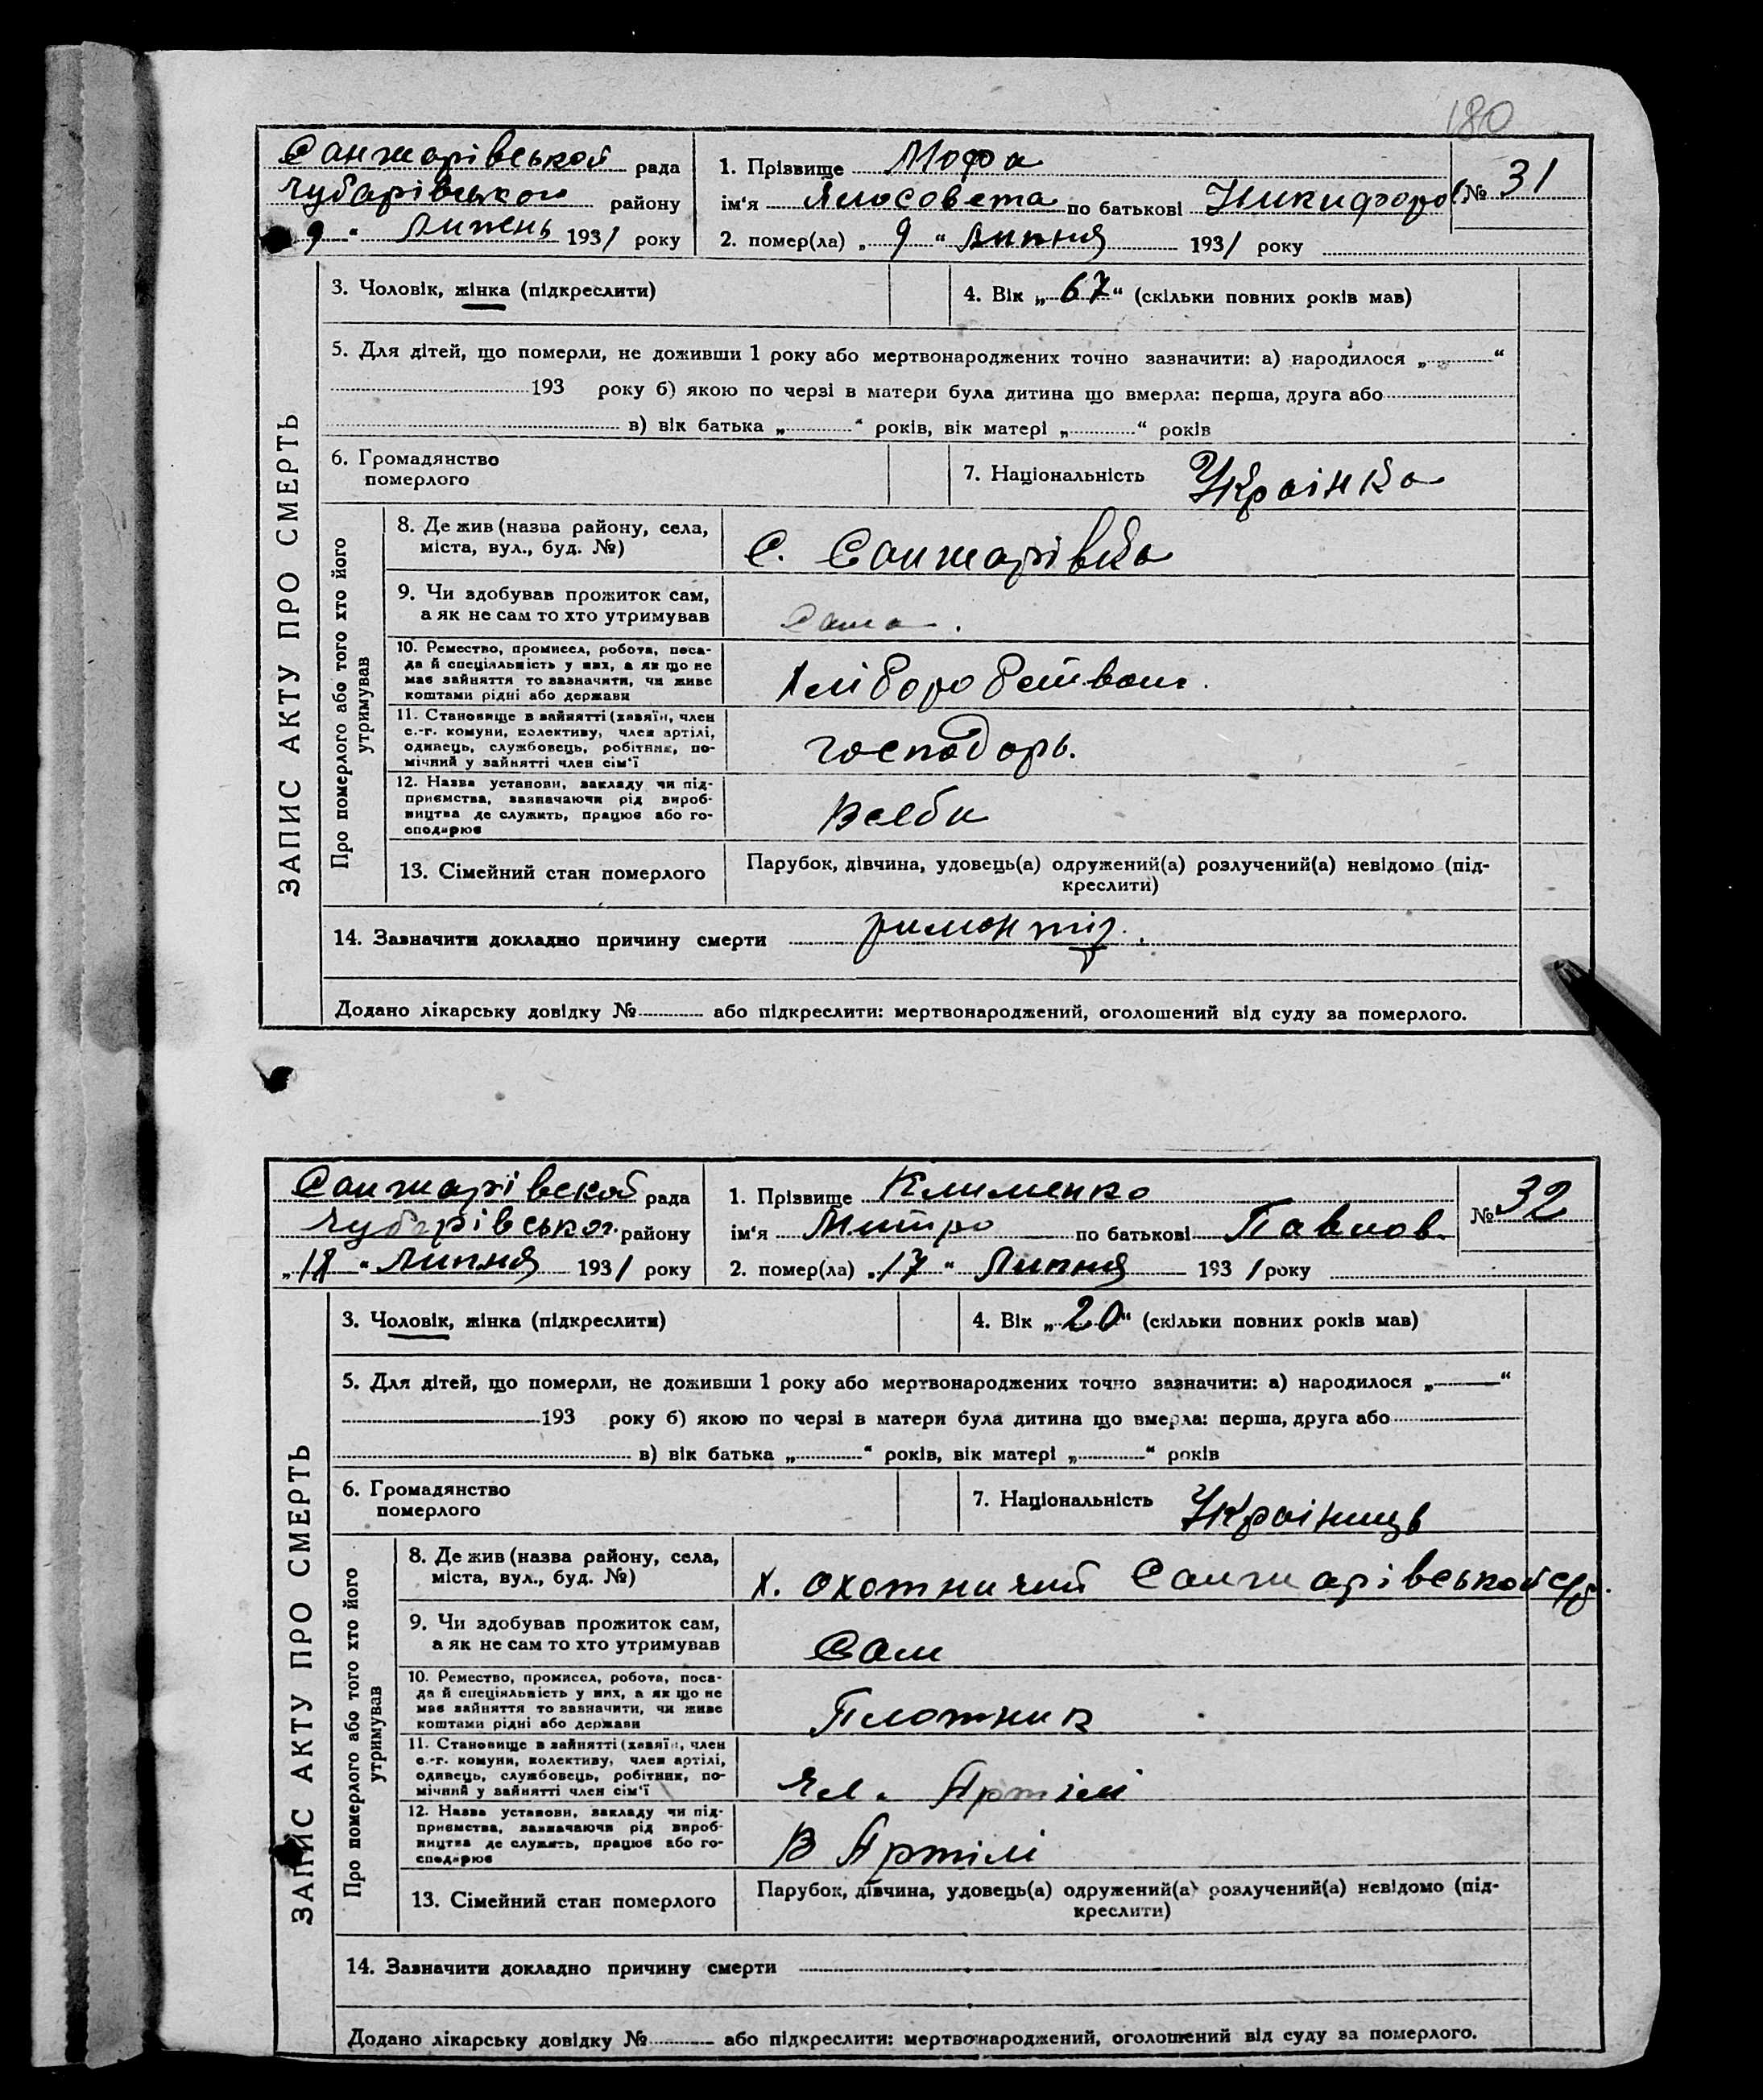 180
Санжарівської рада
Чубарівського району
9 " Липень 1931 року
1. Прізвище Мофа
ім'я Ялисовета по батькові Никифоров
№ 31
2. помер(ла) „ 9 " Липня 1931 року
3. Чоловік, жінка (підкреслити)
4. Вік „ 67 " (скільки повних років мав)
5. Для дітей, що померли, не доживши 1 року або мертвонароджених точно зазначити: а) народилося „ "
193 року б) якою по черзі в матери була дитина що вмерла: перша, друга або
в) вік батька „ " років, вік матері „ " років
6. Громадянство
померлого
7. Національність Українка
ЗАПИС АКТУ ПРО СМЕРТЬ
Про померлого або того хто його
утримував
8. Де жив (назва району, села,
міста, вул., буд. №)
С. Санжарівка
9. Чи здобував прожиток сам,
а як не сам то хто утримував
Сама.
10. Ремество, промисел, робота, поса-
да й спеціяльність у них, а як що не
має зайняття то зазначити, чи живе
коштами рідні або держави
11. Становище в зайнятті (хазяїн, член
с.-г. комуни, колективу, член артілі,
одинець, службовець, робітник, по-
мічний у зайнятті член сім'ї
господарь.
12. Назва установи, закладу чи під-
приємства, зазначаючи рід вироб-
ництва де служить, працює або го-
сподарює
В себи
13. Сімейний стан померлого
Парубок, дівчина, удовець(а) одружений(а) розлучений(а) невідомо (під-
креслити)
14. Зазначити докладно причину смерти
Додано лікарську довідку № або підкреслити: мертвонароджений, оголошений від суду за померлого.
Санжарівской рада
Чубарівського району
„ 18 " Липня 1931 року
1. Прізвище Клименко
ім'я Митро по батькові Павлов.
№ 32
2. помер(ла) „ 17 " Липня 1931 року
3. Чоловік, жінка (підкреслити)
4. Вік „ 20 " (скільки повних років мав)
5. Для дітей, що померли, не доживши 1 року або мертвонароджених точно зазначити: а) народилося „ "
193 року б) якою по черзі в матери була дитина що вмерла: перша, друга або
в) вік батька „ " років, вік матері „ " років
6. Громадянство
померлого
7. Національність Українць
ЗАПИС АКТУ ПРО СМЕРТЬ
Про померлого або того хто його
утримував
8. Де жив (назва району, села,
міста, вул., буд. №)
х. охотничий Санжарівської с/р.
9. Чи здобував прожиток сам,
а як не сам то хто утримував
Сам
10. Ремество, промисел, робота, поса-
да й спеціяльність у них, а як що не
має зайняття то зазначити, чи живе
коштами рідні або держави
Плотник
11. Становище в зайнятті (хазяїн, член
с.-г. комуни, колективу, член артілі,
одинець, службовець, робітник, по-
мічний у зайнятті член сім'ї
Чл. Артілі
12. Назва установи, закладу чи під-
приємства, зазначаючи рід вироб-
ництва де служить, працює або го-
сподарює
В Артілі
13. Сімейний стан померлого
Парубок, дівчина, удовець(а) одружений(а) розлучений(а) невідомо (під-
креслити)
14. Зазначити докладно причину смерти
Додано лікарську довідку № або підкреслити: мертвонароджений, оголошений від суду за померлого.